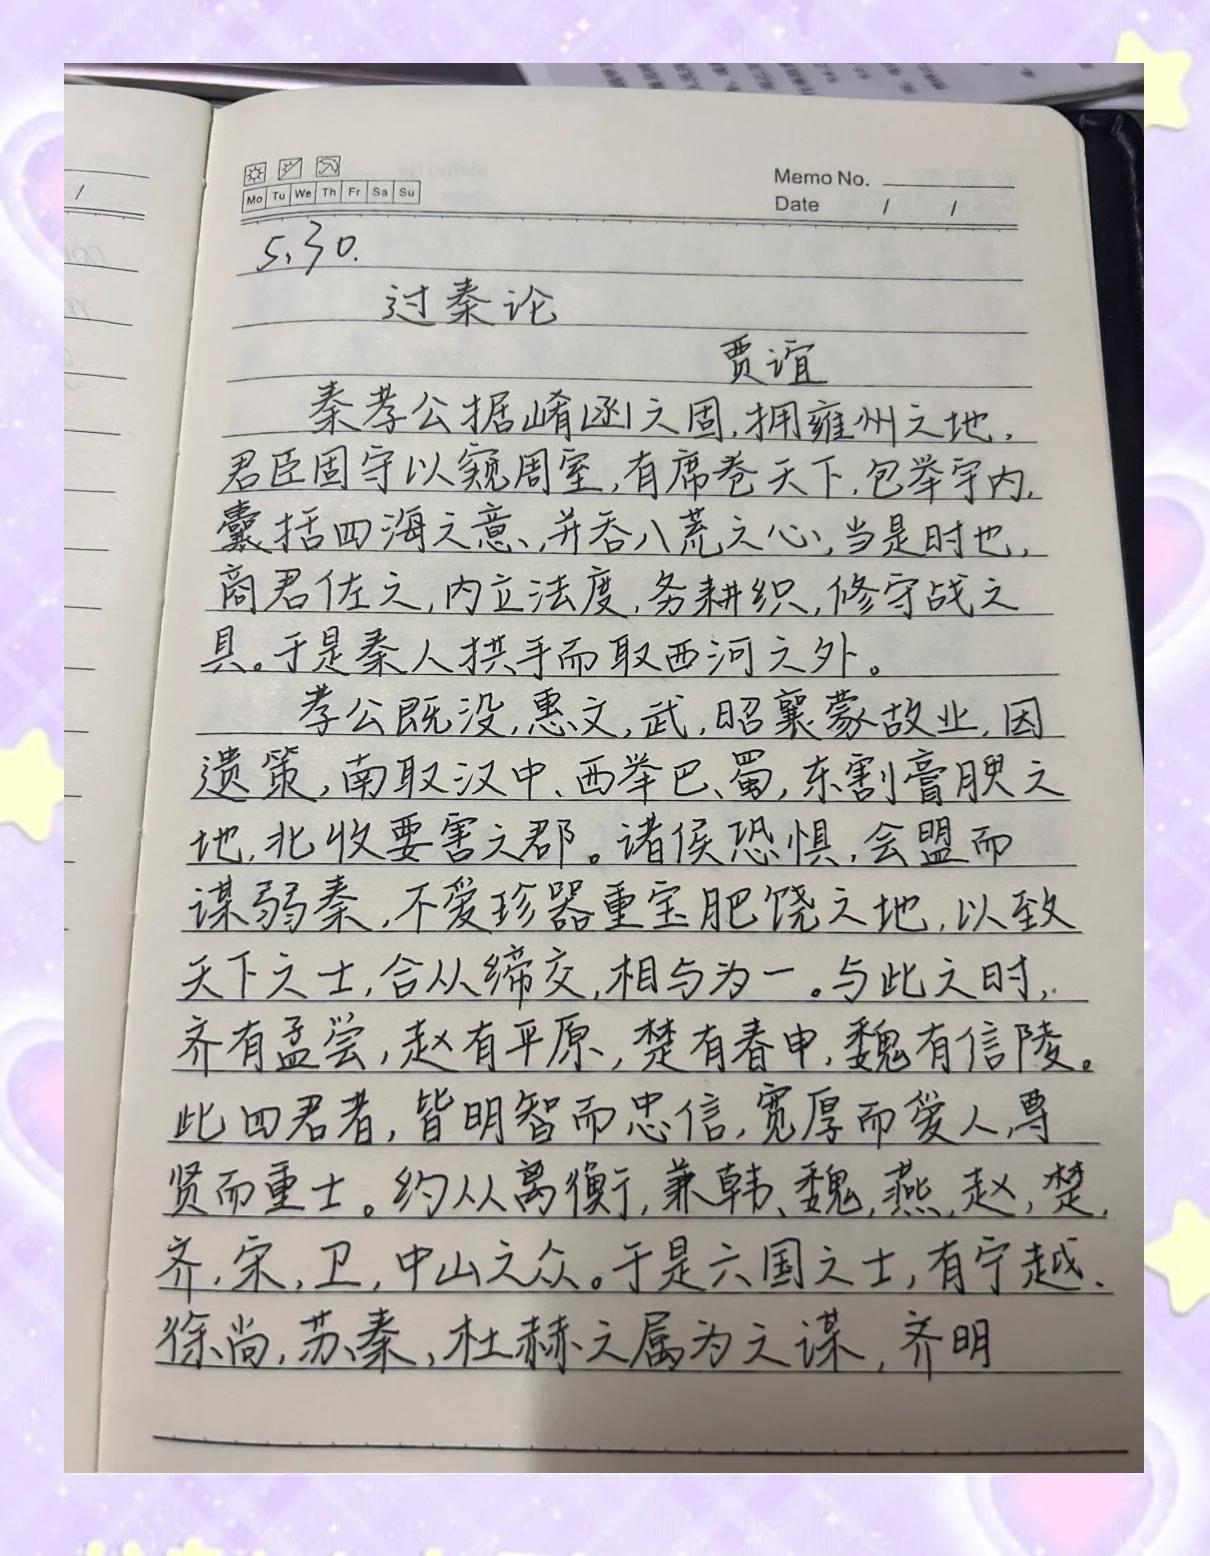 Mo Tu We Th Fr Sa Su
Memo No.
Date / /
5,30.
过秦论
贾谊
秦孝公据崤函之固,拥雍州之地,
君臣固守以窥周室,有席卷天下,包举宇内,
囊括四海之意,并吞八荒之心,当是时也,
商君佐之,内立法度,务耕织,修守战之
具。于是秦人拱手而取西河之外。
孝公既没,惠文,武,昭襄蒙故业,因
遗策,南取汉中、西举巴、蜀,东割膏腴之
地,北收要害之郡。诸侯恐惧,会盟而
谋弱秦,不爱珍器重宝肥饶之地,以致
天下之士,合从缔交,相与为一。与此之时,
齐有孟尝,赵有平原,楚有春申,魏有信陵。
此四君者,皆明智而忠信,宽厚而爱人,尊
贤而重士。约从离衡,兼韩、魏,燕,赵,楚,
齐,宋,卫,中山之众。于是六国之士,有宁越、
徐尚,苏秦,杜赫之属为之谋,齐明